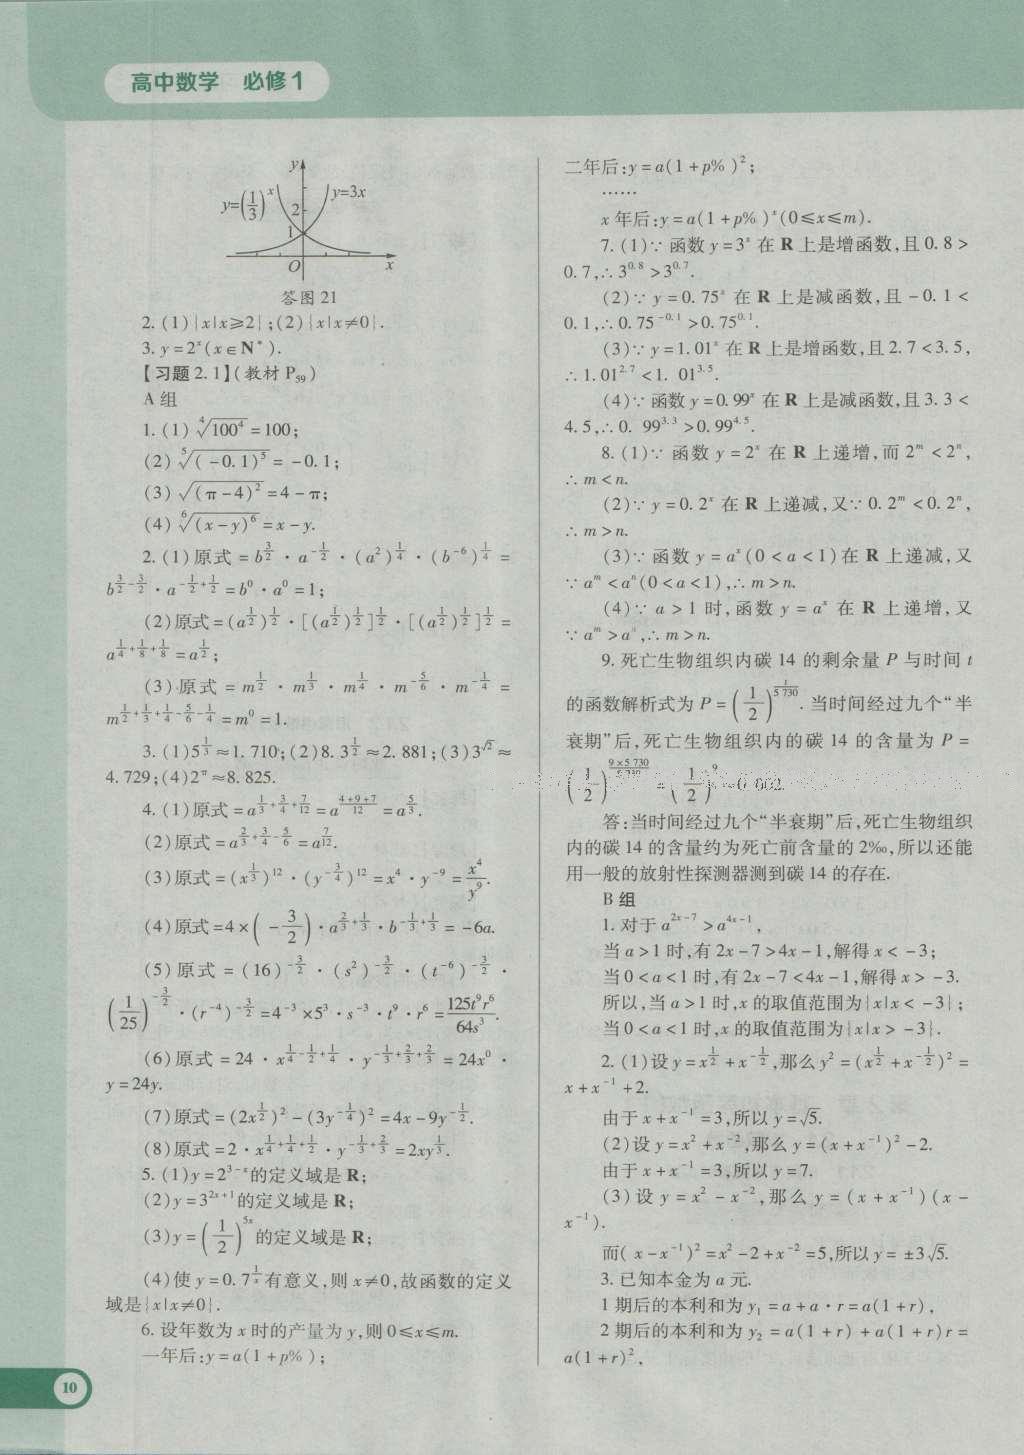 高中数学 必修1
y
y=(1/3)^x
y=3x
2
1
O
x
答图 21
2. (1){x|x≥2};(2){x|x≠0}.
3. y=2^x(x∈N*).
【习题 2.1】(教材 P59)
A 组
1. (1) ⁴√(100⁴) =100;
(2) ⁵√((-0.1)⁵) = -0.1;
(3) √((π-4)²) =4-π;
(4) ⁶√((x-y)⁶) =x-y.
2. (1)原式 = b^(3/2) · a^(-1/2) · (a²)^(1/4) · (b^(-6))^(1/4) =
b^(3/2-3/2) · a^(-1/2+1/2) = b⁰ · a⁰ =1;
(2)原式=(a^(1/2))^(1/2) · [(a^(1/2))^(1/2)]^(1/2) · [(a^(1/2))^(1/2)]^(1/2) =
a^(1/4+1/8+1/8) = a^(1/2);
(3)原式 = m^(1/2) · m^(1/3) · m^(1/4) · m^(-5/6) · m^(-1/4) =
m^(1/2+1/3+1/4-5/6-1/4) = m⁰ =1.
3. (1)5^(1/3)≈1.710;(2)8.3^(1/2)≈2.881;(3)3^(√2)≈
4.729;(4)2^π≈8.825.
4. (1)原式=a^(1/3+3/4+7/12)=a^((4+9+7)/12)=a^(5/3).
(2)原式=a^(2/3+3/4-5/6)=a^(7/12).
(3)原式=(x^(1/3))^12 · (y^(-3/4))^12 = x⁴ · y^(-9) = x⁴/y⁹.
(4)原式=4×(-3/2) · a^(2/3+1/3) · b^(-1/3+1/3) = -6a.
(5)原式 = (16)^(-3/2) · (s²)^(-3/2) · (t^(-6))^(-3/2) ·
(1/25)^(-3/2) · (r^(-4))^(-3/2) =4^(-3)×5³ · s^(-3) · t⁹ · r⁶ = 125t⁹r⁶/64s³.
(6)原式 = 24 · x^(1/4-1/2+1/4) · y^(-1/3+2/3+2/3) = 24x⁰ ·
y=24y.
(7)原式=(2x^(1/2))² - (3y^(-1/4))² =4x-9y^(-1/2).
(8)原式=2 · x^(1/4+1/4+1/2) · y^(-1/3+2/3) =2xy^(1/3).
5. (1)y=2^(3-x)的定义域是 R;
(2)y=3^(2x+1)的定义域是 R;
(3)y=(1/2)^(5x)的定义域是 R;
(4)使 y=0.7^(1/x)有意义,则 x≠0,故函数的定义
域是{x|x≠0}.
6. 设年数为 x 时的产量为 y,则 0≤x≤m.
一年后:y=a(1+p%);
二年后:y=a(1+p%)²;
……
x 年后:y=a(1+p%)^x(0≤x≤m).
7. (1)∵ 函数 y=3^x 在 R 上是增函数,且 0.8>
0.7,∴3^0.8>3^0.7.
(2)∵ y=0.75^x 在 R 上是减函数,且 -0.1<
0.1,∴0.75^(-0.1)>0.75^0.1.
(3)∵ y=1.01^x 在 R 上是增函数,且 2.7<3.5,
∴1.01^2.7<1.01^3.5.
(4)∵ 函数 y=0.99^x 在 R 上是减函数,且 3.3<
4.5,∴0.99^3.3>0.99^4.5.
8. (1)∵ 函数 y=2^x 在 R 上递增,而 2^m<2^n,
∴m<n.
(2)∵ y=0.2^x 在 R 上递减,又∵0.2^m<0.2^n,
∴m>n.
(3)∵ 函数 y=a^x(0<a<1)在 R 上递减,又
∵a^m<a^n(0<a<1),∴m>n.
(4)∵ a>1 时,函数 y=a^x 在 R 上递增,又
∵a^m>a^n,∴m>n.
9. 死亡生物组织内碳 14 的剩余量 P 与时间 t
的函数解析式为 P=(1/2)^(t/5 730). 当时间经过九个“半
衰期”后,死亡生物组织内的碳 14 的含量为 P=
(1/2)^(9×5 730/5 730) =(1/2)^9≈0.002.
答:当时间经过九个“半衰期”后,死亡生物组织
内的碳 14 的含量约为死亡前含量的 2‰,所以还能
用一般的放射性探测器测到碳 14 的存在.
B 组
1. 对于 a^(2x-7)>a^(4x-1),
当 a>1 时,有 2x-7>4x-1,解得 x<-3;
当 0<a<1 时,有 2x-7<4x-1,解得 x>-3.
所以,当 a>1 时,x 的取值范围为{x|x<-3};
当 0<a<1 时,x 的取值范围为{x|x>-3}.
2. (1)设 y=x^(1/2)+x^(-1/2),那么 y²=(x^(1/2)+x^(-1/2))²=
x+x^(-1)+2.
由于 x+x^(-1)=3,所以 y=√5.
(2)设 y=x²+x^(-2),那么 y=(x+x^(-1))²-2.
由于 x+x^(-1)=3,所以 y=7.
(3)设 y=x²-x^(-2),那么 y=(x+x^(-1))(x-
x^(-1)).
而(x-x^(-1))²=x²-2+x^(-2)=5,所以 y=±3√5.
3. 已知本金为 a 元.
1 期后的本利和为 y₁=a+a·r=a(1+r),
2 期后的本利和为 y₂=a(1+r)+a(1+r)r=
a(1+r)²,
10